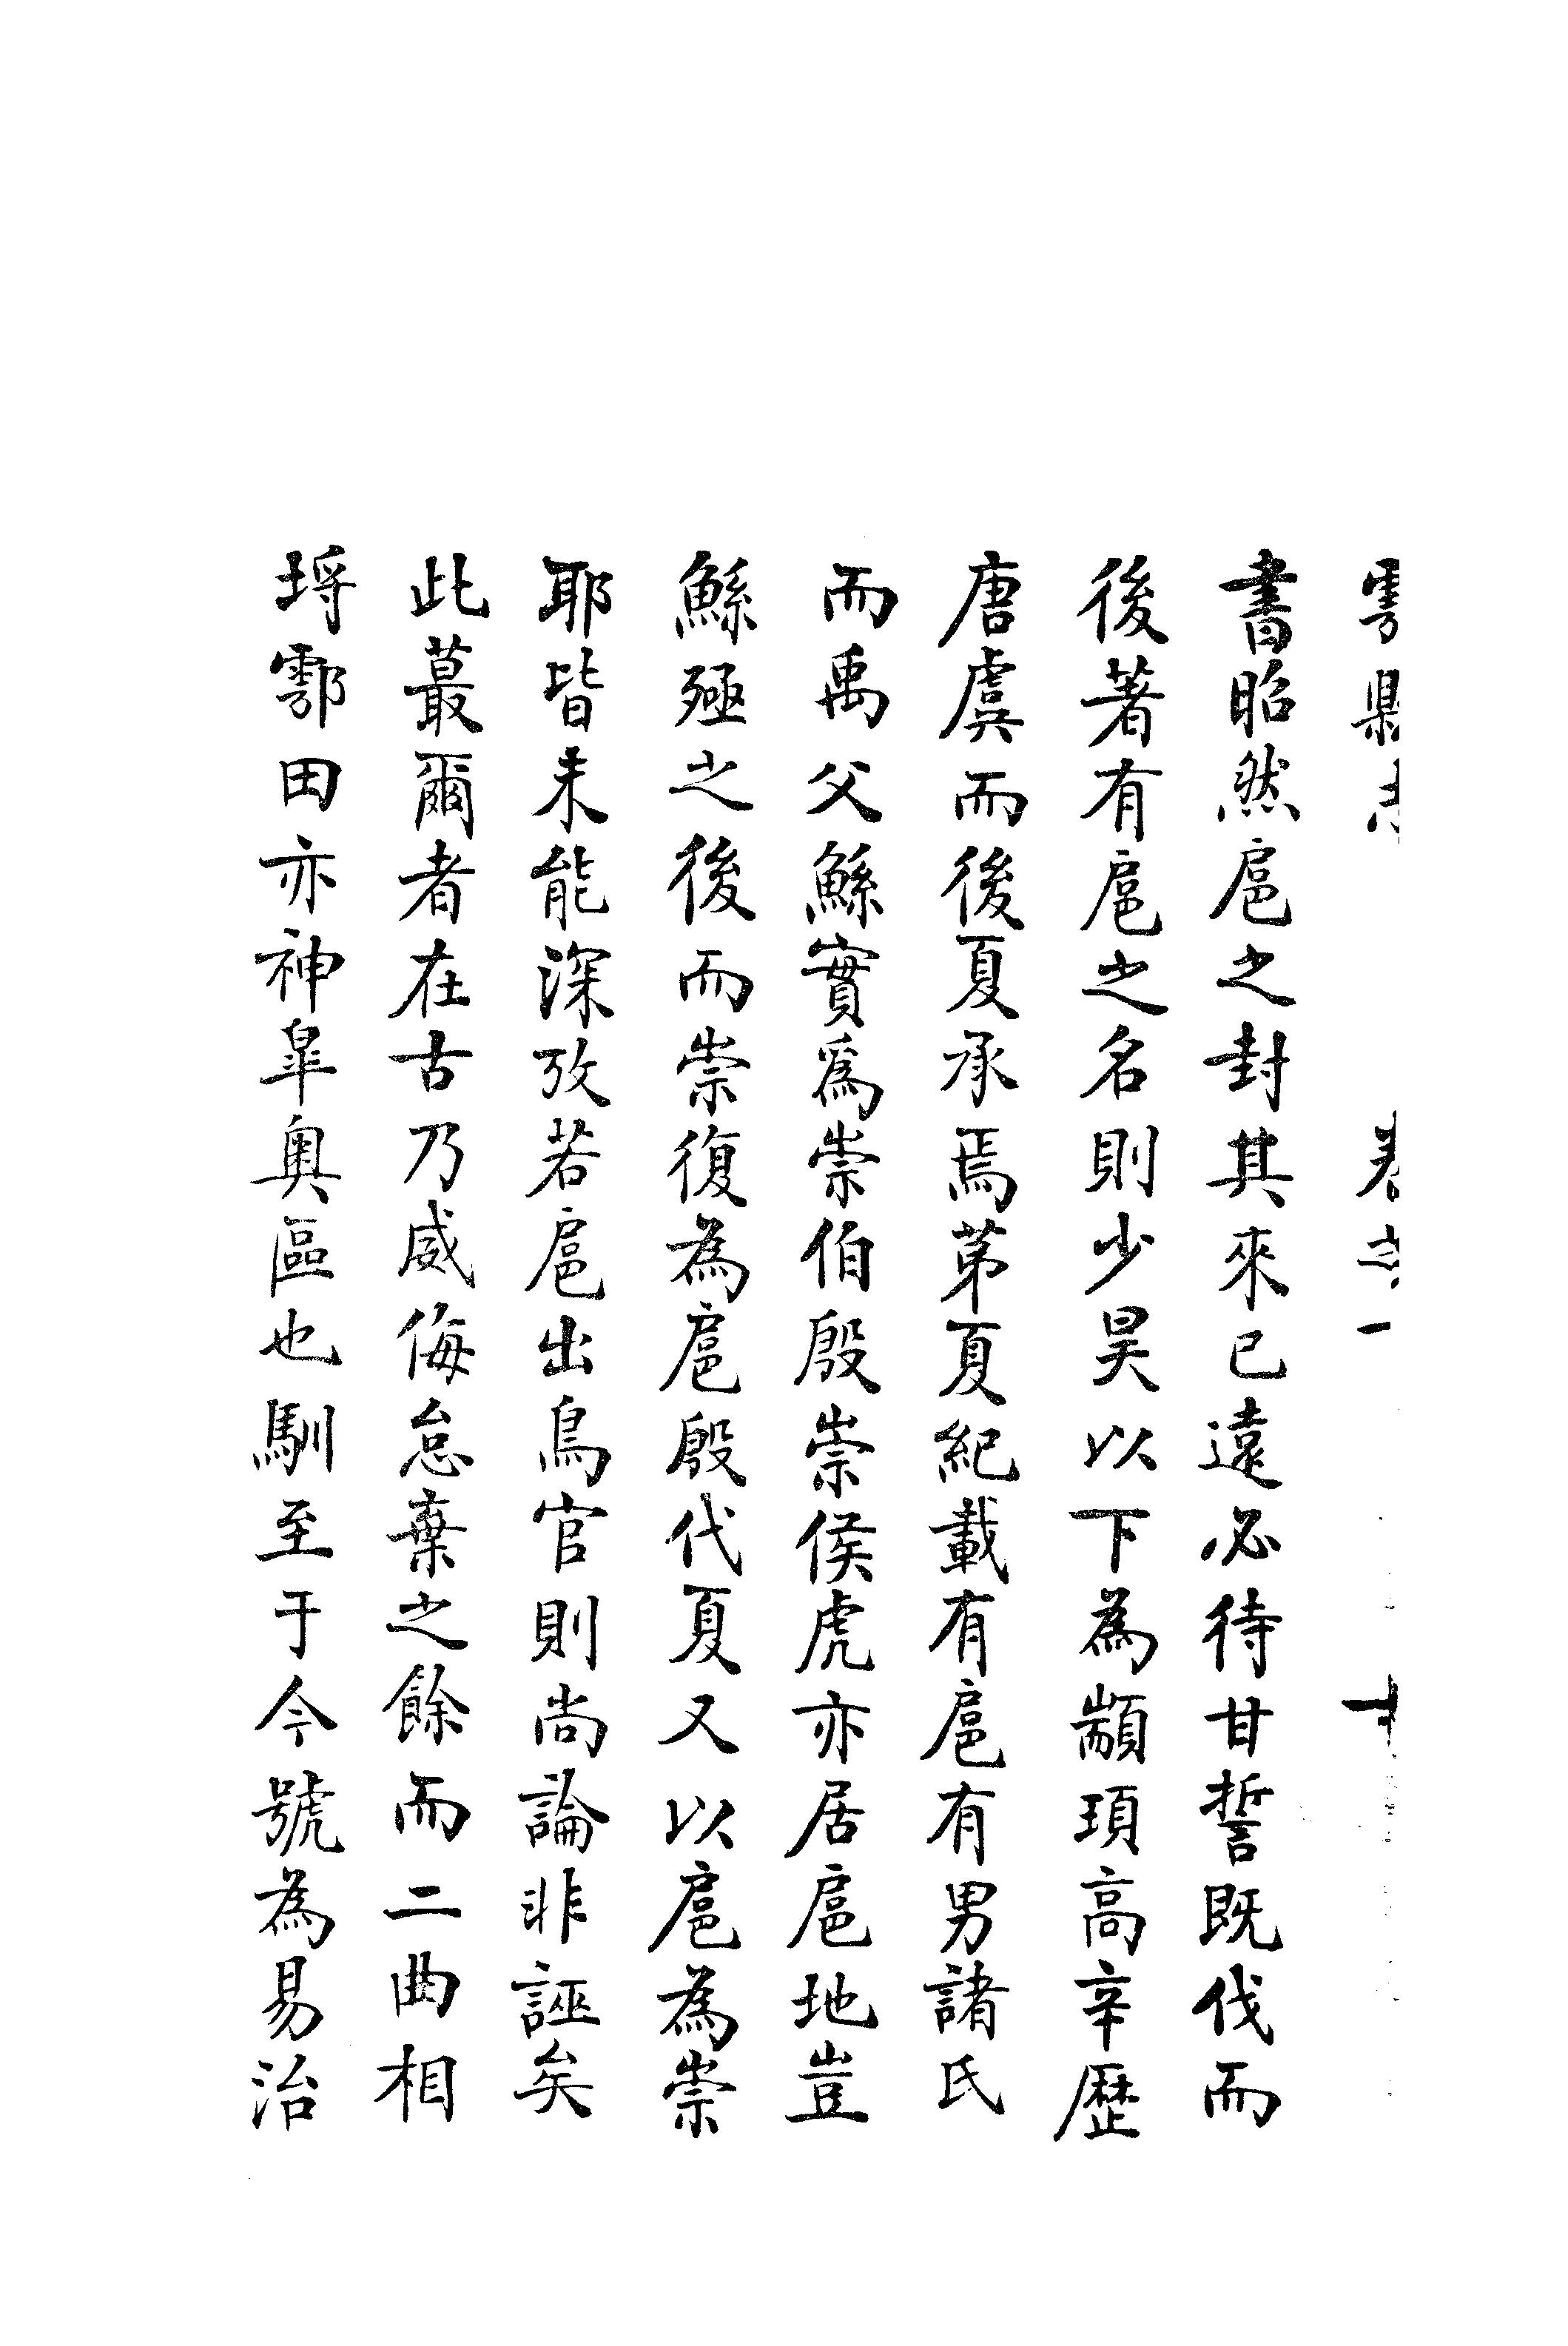 縣 卷之一
書昭然扈之封其來已遠必待甘誓既伐而
後著有扈之名則少昊以下為顓頊高辛歷
唐虞而後夏承焉苐夏紀載有扈有男諸氏
而禹父鯀實爲崇伯殷崇侯虎亦居扈地豈
鯀殛之後而崇復為扈殷代夏又以扈為崇
耶皆未能深攷若扈出鳥官則尚論非誣矣
此蕞爾者在古乃威侮怠棄之餘而二曲相
埒鄠田亦神臯奥區也馴至于今號為易治